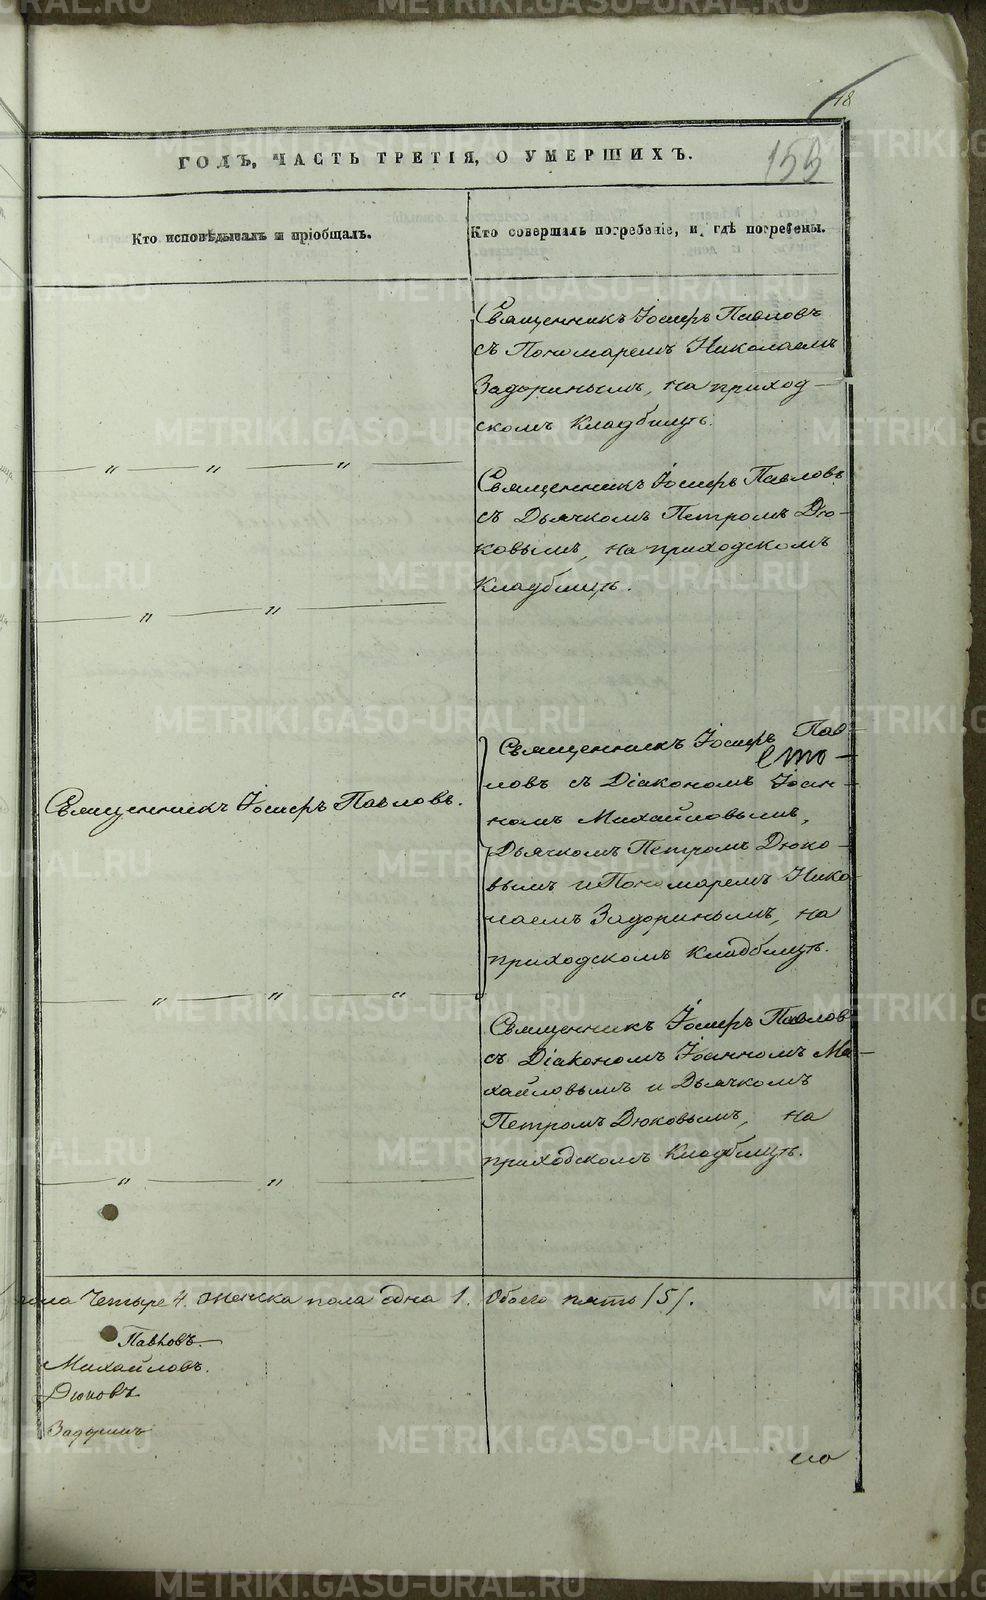 18
155
ГОДЪ, ЧАСТЬ ТРЕТІЯ, О УМЕРШИХЪ.
Кто исповѣдывалъ и пріобщалъ.
Кто совершалъ погребеніе, и гдѣ погребены.
Священникъ Іосифъ Павловъ
съ Пономаремъ Николаемъ
Задоринымъ, на приход-
скомъ кладбищѣ.
Священникъ Іосифъ Павловъ
съ Дьячкомъ Петромъ Дю-
ковымъ, на приходскомъ
кладбищѣ.
Священникъ Іосифъ Павловъ.
Священникъ Іосифъ Пав-
ловъ съ Діакономъ Іоан-
номъ Михайловымъ,
Дьячкомъ Петромъ Дюко-
вымъ и Пономаремъ Нико-
лаемъ Задоринымъ, на
приходскомъ кладбищѣ.
Священникъ Іосифъ Павловъ
съ Діакономъ Іоанномъ Ми-
хайловымъ и Дьячкомъ
Петромъ Дюковымъ, на
приходскомъ кладбищѣ.
пола четыре 4. женска пола одна 1. Обоего пять /5/.
Павловъ.
Михайловъ.
Дюковъ
Задоринъ
METRIKI.GASO-URAL.RU